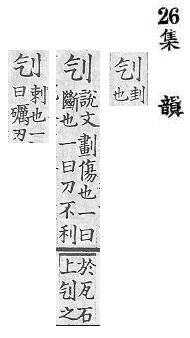 26
集韻
刉 刲也
刉 說文劃傷也一曰
斷也一曰刀不利
於瓦石
上刉之
刉 刺也一
曰礪刃